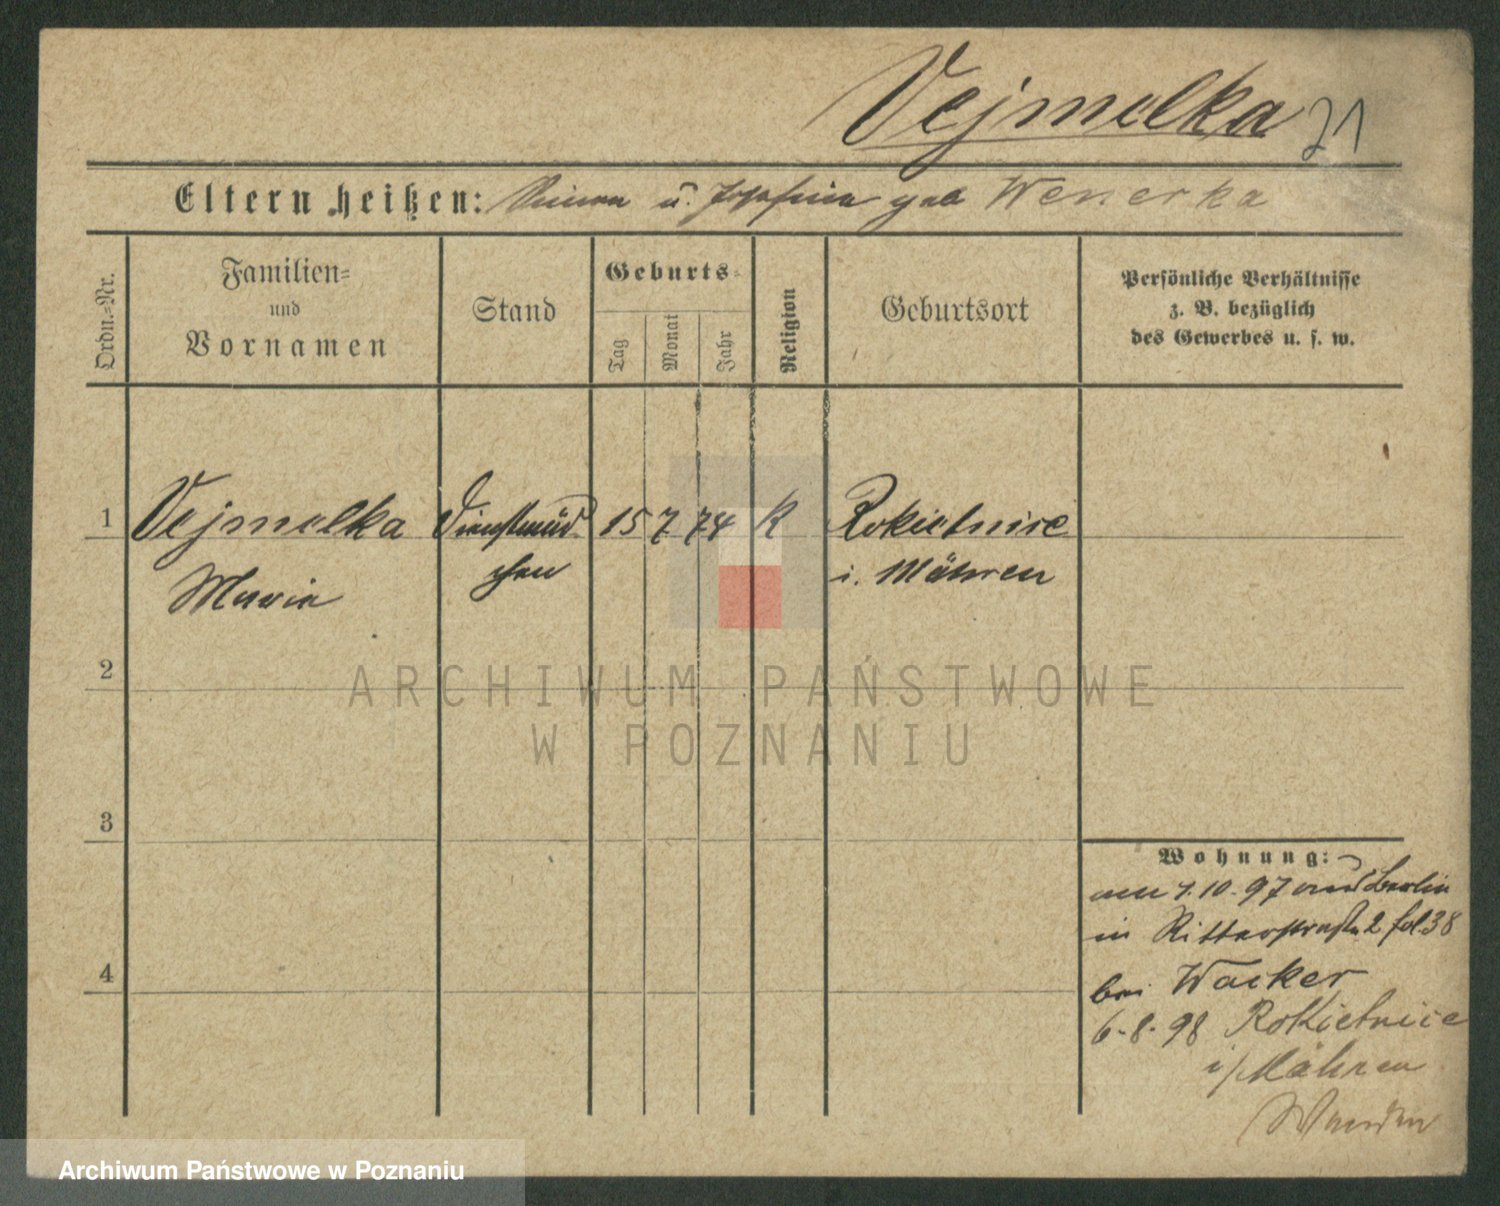 Vejmelka 71
Eltern heißen: Simon u. Josefine geb Wenerka
Ordn.-Nr.
Familien-
und
Vornamen
Stand
Geburts-
Tag
Monat
Jahr
Religion
Geburtsort
Persönliche Verhältnisse
z. B. bezüglich
des Gewerbes u. s. w.
1 Vejmelka Dienstmäd 15 7 74 K Rokietnice
Marie chen i. Mähren
2
3
4
Wohnung:
am 1.10.97 aus Berlin
in Ritterstraße 2 fol. 38
bei Wacker
6.8.98 Rokietnice
i/Mähren
ARCHIWUM PAŃSTWOWE
W POZNANIU
Archiwum Państwowe w Poznaniu